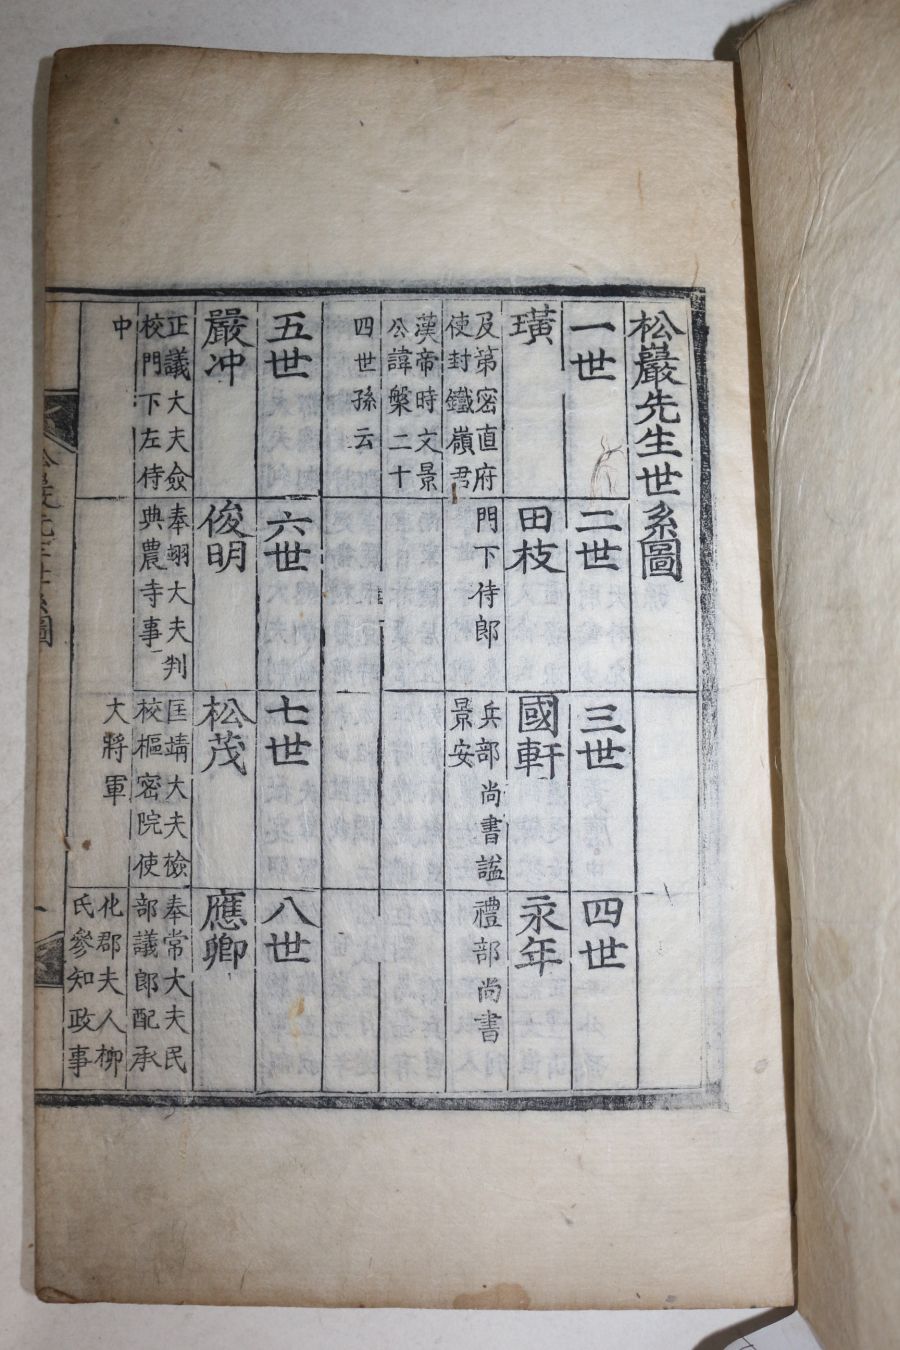 松巖先生世系圖
一世
璜
及第密直府
使封鐵嶺君
漢帝時文景
公諱槃二十
四世孫云
二世
田枝
門下侍郎
三世
國軒
兵部尚書諡
景安
四世
永年
禮部尚書
五世
嚴冲
正議大夫僉
校門下左侍
中
六世
俊明
奉翊大夫判
典農寺事
七世
松茂
匡靖大夫檢
校樞密院使
大將軍
八世
應卿
奉常大夫民
部議郎配承
化郡夫人柳
氏參知政事